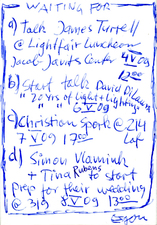 WAITING FOR
a) talk James Turrell
@ Lightfair Luncheon
Jacob Javits Center 4 V 09
1200
b) Start talk David Dilaura
"20 yrs of Light + Lighting"
6 V 09
c) Christian Spork @ 214
7 V 09 1700 Laf
d) Simon Vlaminck
+ Tina Rubens to start
prep for their wedding
@ 319 8 V 09 1300